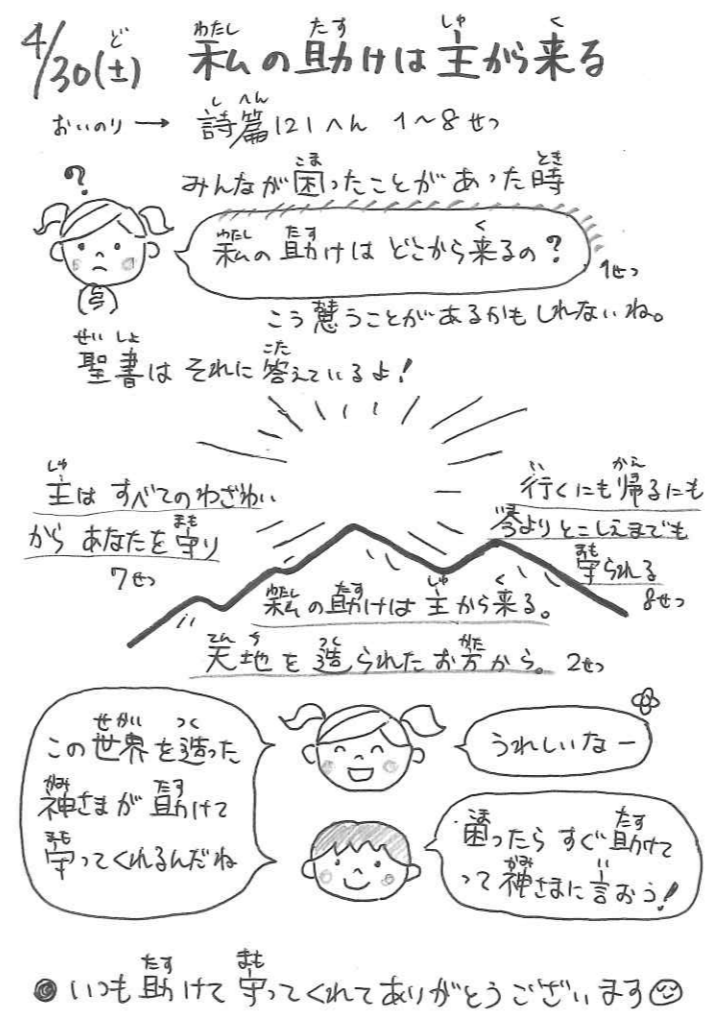 4/30(土) 私の助けは主から来る
おいのり → 詩篇121へん 1〜8せつ
みんなが困ったことがあった時
?
私の助けは どこから来るの?
1せつ
こう思うことがあるかもしれないね。
聖書は それに答えているよ!
主は すべてのわざわい
から あなたを守り
7せつ
行くにも帰るにも
今よりとこしえまでも
守られる
8せつ
私の助けは主から来る。
天地を造られたお方から。2せつ
この世界を造った
神さまが助けて
守ってくれるんだね
うれしいなー
困ったら すぐ助けて
って神さまに言おう!
●いつも助けて守ってくれてありがとうございます